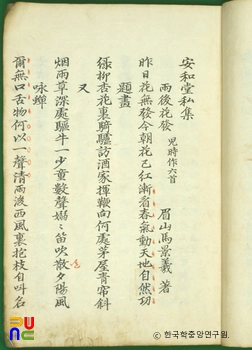 安和堂私集
眉山馬景羲著
雨後花發 兒時作六首
昨日花無發今朝花已紅漸看春氣動天地自然功
題畫
綠柳杏花裏騎驢訪酒家揮鞭向何處茅屋青帘斜
又
烟雨草深處驅牛一少童數聲嫋〻笛吹散夕陽風
咏蟬
爾無口舌物何以一聲清雨渡西風裏抱枝自叫名
ⓒ 한국학중앙연구원